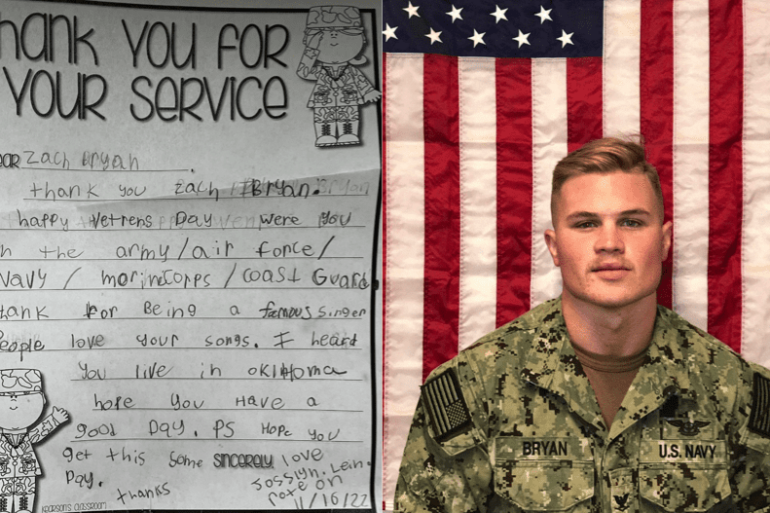 hank You for
Your Service
AR Zach Bryan .
thank you Zach Bryan.
happy Vetrens Day were you
n the army/air force/
Navy / morineCorps / coast Guard
tank for Being a famous singer
People love your songs. I heard
You live in oklHoma
hope You Have a
good Day. PS Hope You
get this Some SINCERELY, love
Day. thanks
rote on
11/16/22
CLASSROOM
BRYAN
U.S. NAVY